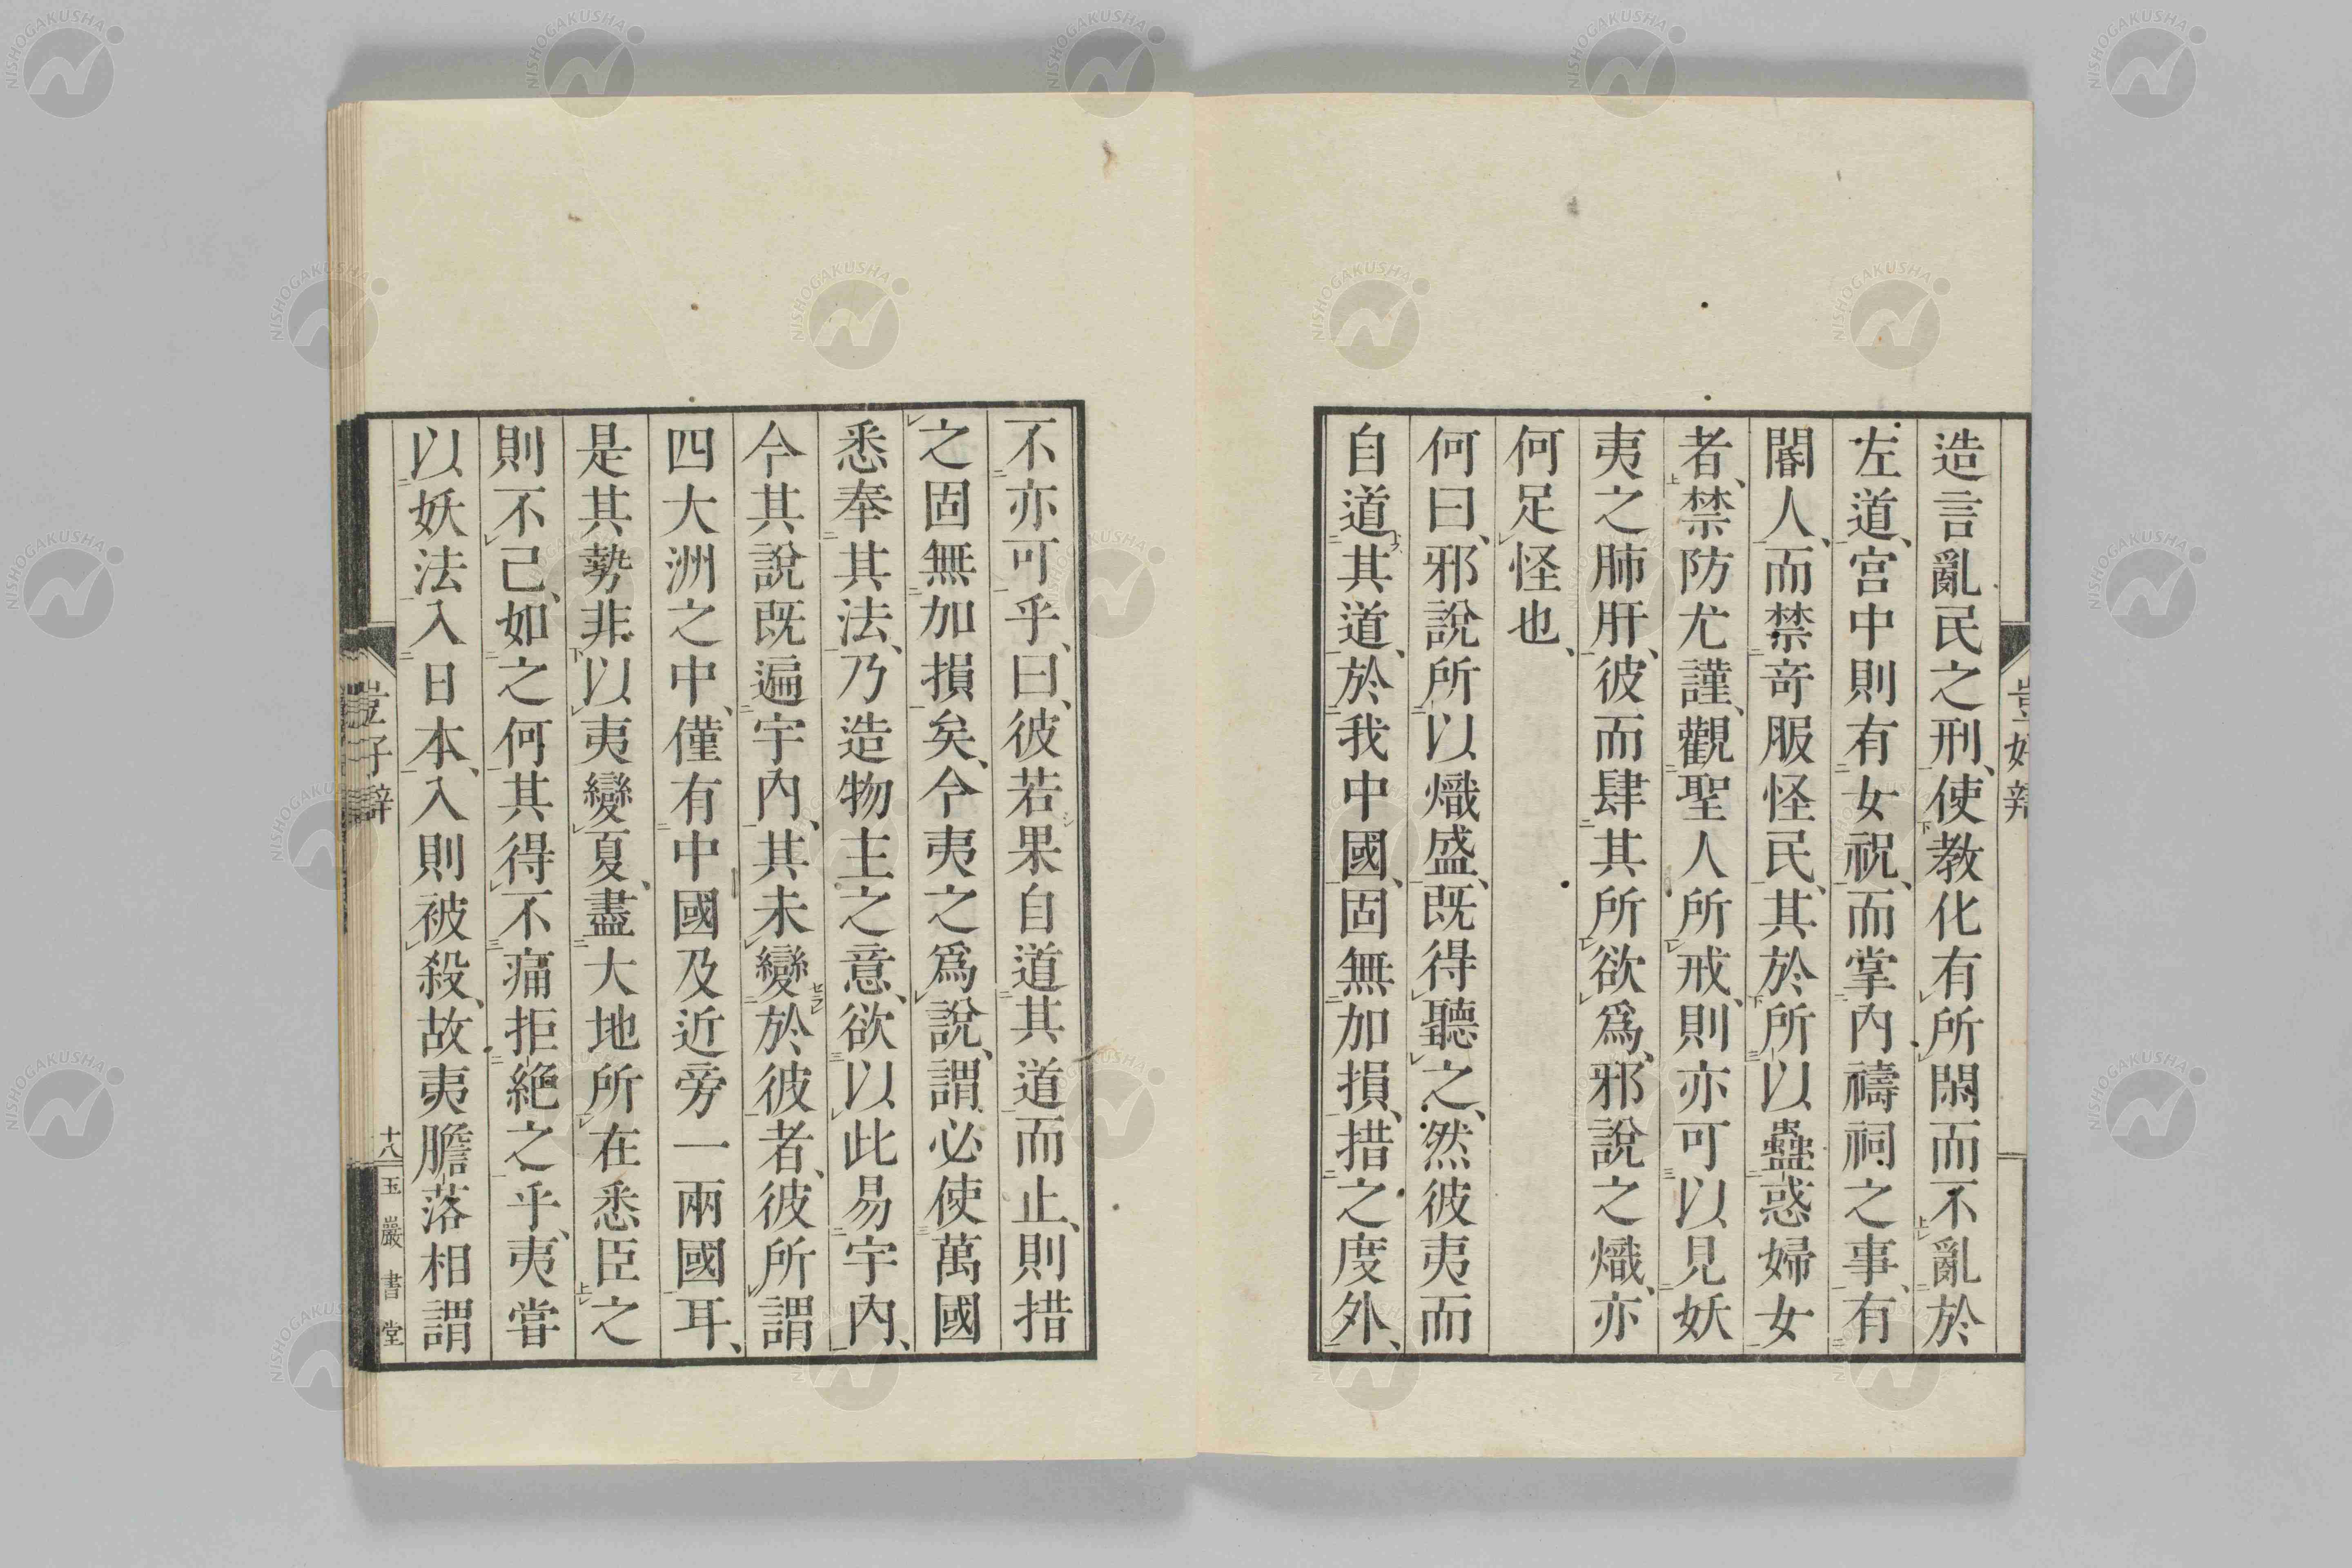 造言亂民之刑、使教化有所閑而不亂於
左道、宮中則有女祝、而掌內禱祠之事、有
閽人、而禁奇服怪民、其於所以蠱惑婦女
者、禁防尤謹、觀聖人所戒、則亦可以見妖
夷之肺肝、彼而肆其所欲爲、邪說之熾、亦
何足怪也、
何曰、邪說所以熾盛、既得聽之、然彼夷而
自道其道、於我中國、固無加損、措之度外、
不亦可乎、曰、彼若果自道其道而止、則措
之固無加損矣、今夷之爲說、謂必使萬國
悉奉其法、乃造物主之意、欲以此易宇內、
今其說既遍宇內、其未變於彼者、彼所謂
四大洲之中、僅有中國及近旁一兩國耳、
是其勢非以夷變夏、盡大地所在悉臣之
則不已、如之何其得不痛拒絕之乎、夷嘗
以妖法入日本、入則被殺、故夷膽落相謂
十八
玉巖書堂
NISHOGAKUSHA